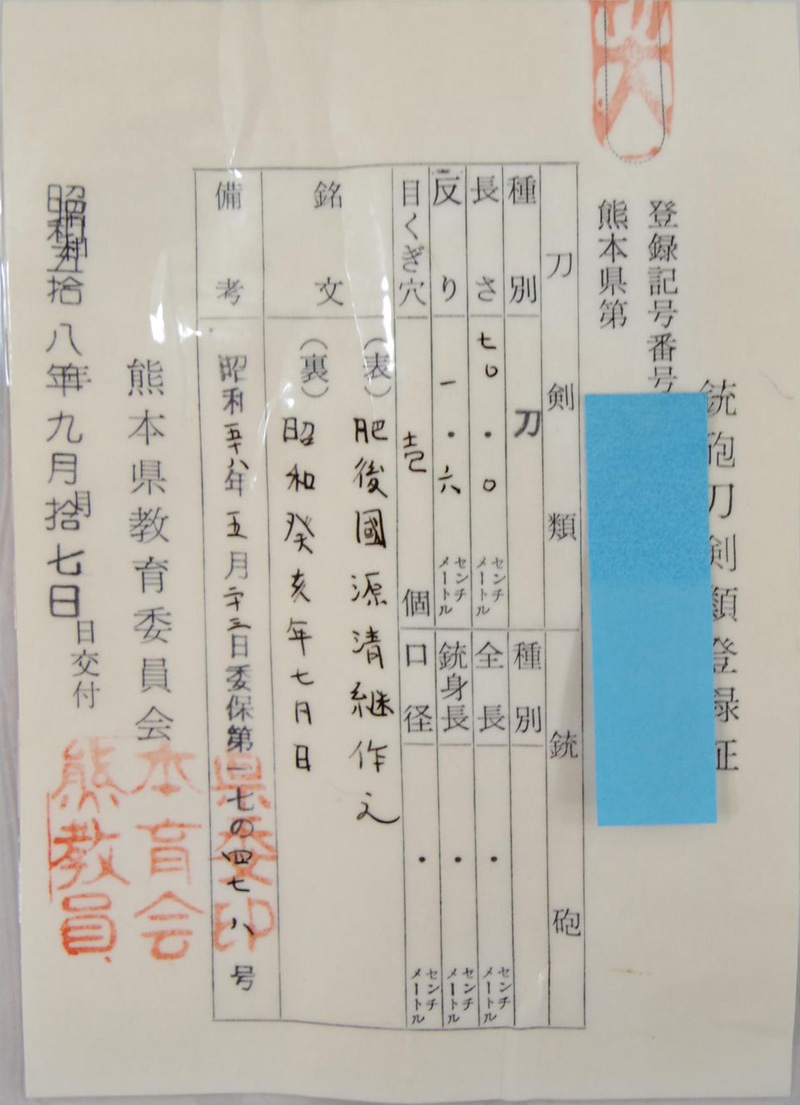 銃砲刀剣類登録証
登録記号番号
熊本県第
刀剣類
種別 刀
長さ 七〇・〇 センチメートル
反り 一・六 センチメートル
目くぎ穴 壱 個
銃砲
種別
全長 ・ センチメートル
銃身長 ・ センチメートル
口径 ・ センチメートル
銘文
(表) 肥後國源清継作之
(裏) 昭和癸亥年七月日
備考
昭和五十八年五月二十三日委保第一七の四七八号
熊本県教育委員会
昭和五拾八年九月拾七日
年 月 日交付
熊本県
教育委
員会印